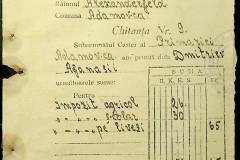 Raionul Alexanderfeld
Comuna Adamovca
Chitanța Nr. 9.
Subsemnatul Casier al Primăriei
Adamovca am primit dela Dmitriev
Afanasii
următoarele sume:
SUMA
Pentru
Impozit agricol 26
" " școlar 30
" " pe livezi 65
65